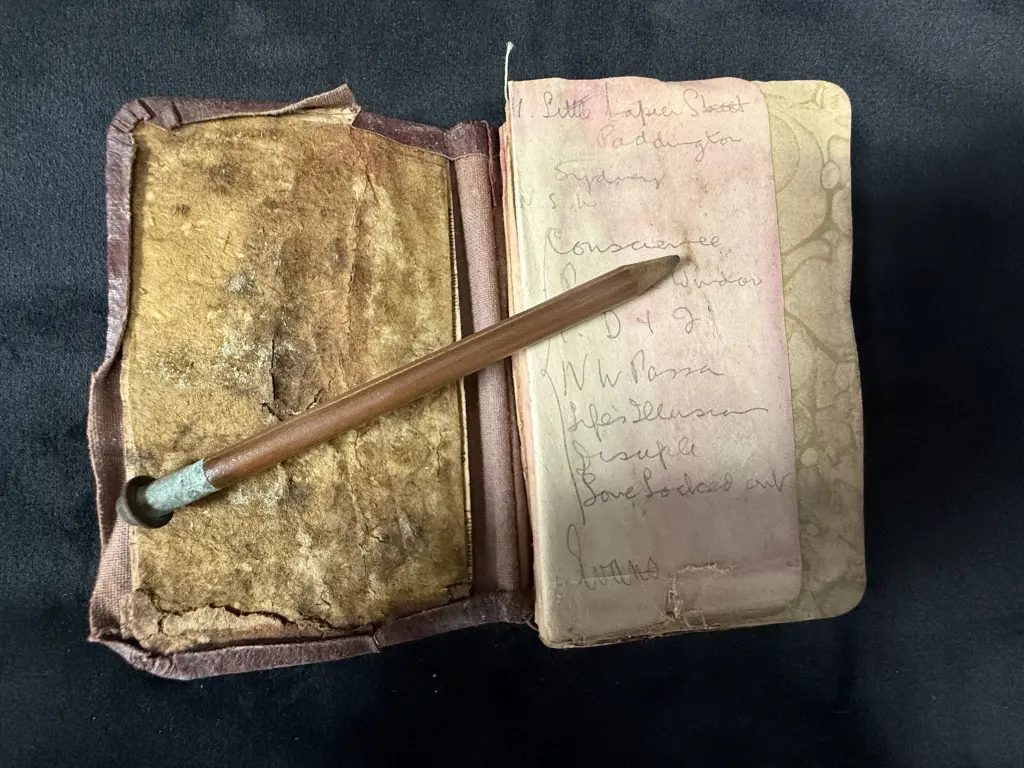 1. Little Napier Street
Paddington
Sydney
N.S.W
Conscience
Windsor
D & J
W W Passa
Life's Illusion
Disciple
Love Locked out
Evans